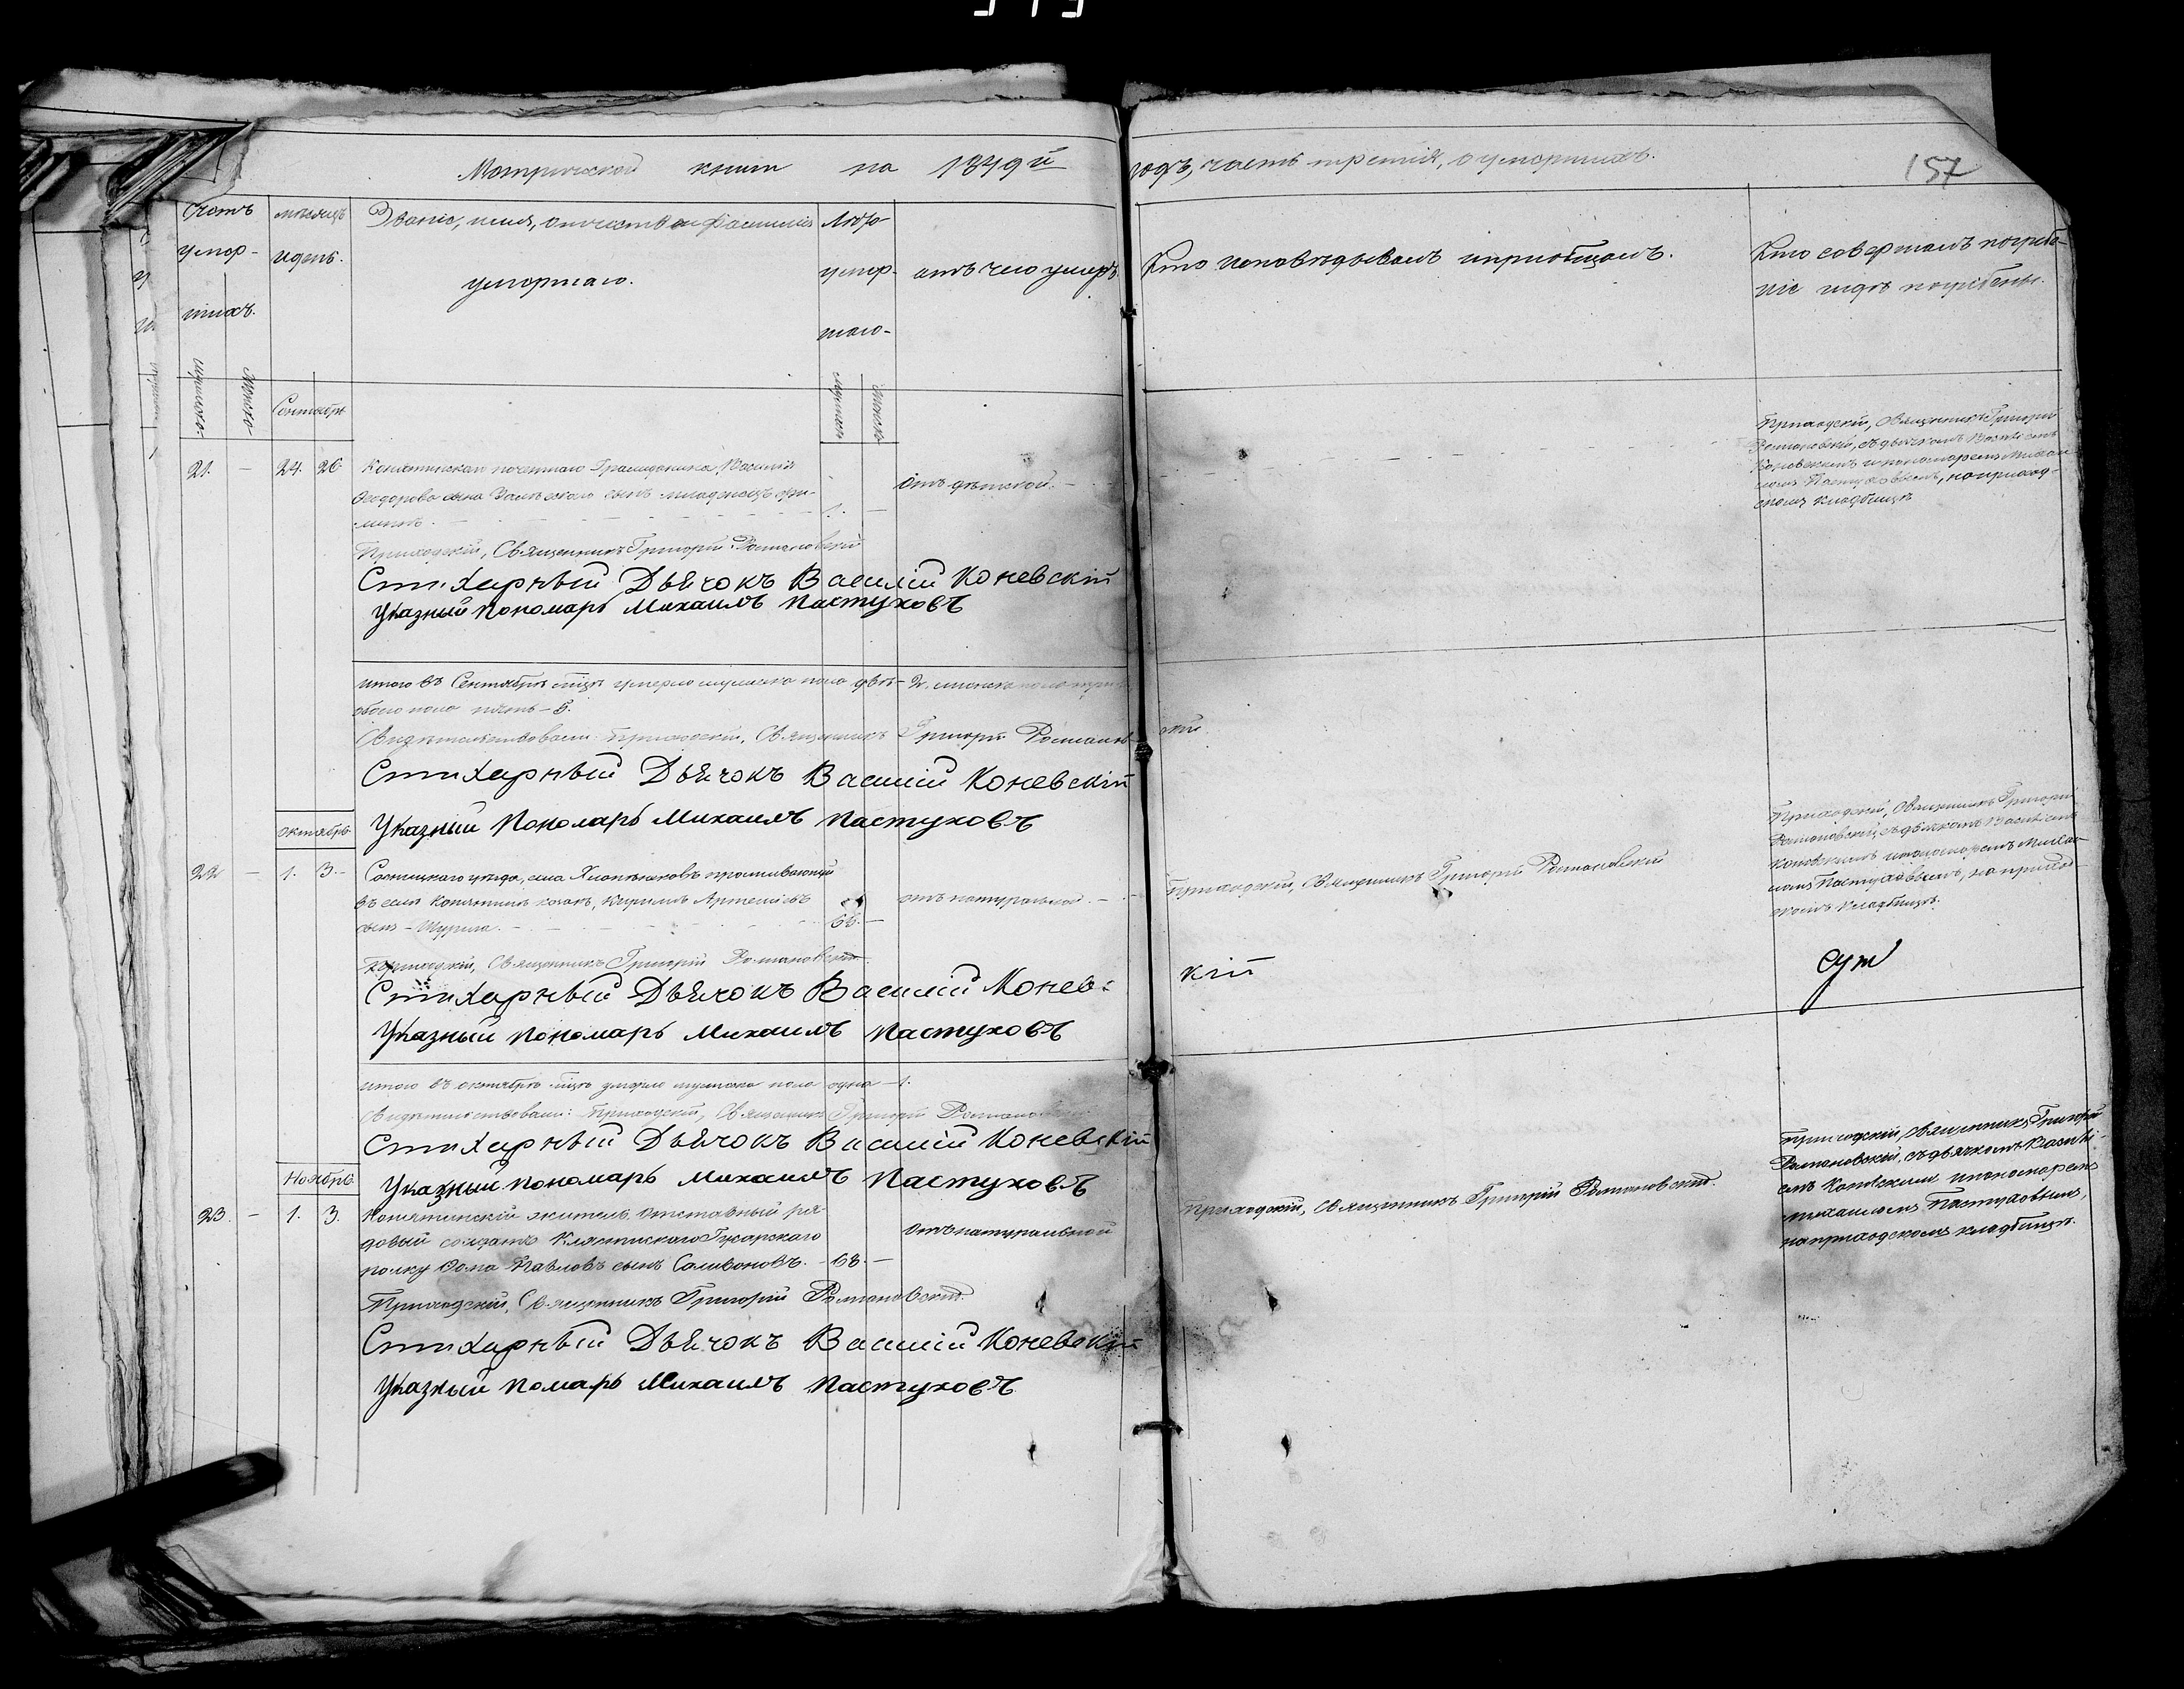 Метрической книги на 1849й годъ, часть третія, о умершихъ.
157
Счетъ умер- шихъ.
мужеска-
женска-
мѣсяцъ идень.
Званіе, имя, отчество и фамилія умершаго.
Лѣта умер- шаго-
отъ чего умеръ
Кто исповѣдывалъ ипріобщалъ.
Кто совершалъ погребе-
ніе игдѣ погребены.
Сентябрь
21. - 24. 26.
почетнаго Гражданина, Василія
Ѳеодорова сына сынъ младенецъ
1. -
Отъ дѣтской. -
Приходскій, Священникъ Григорій
Романовскій, съ дьячкомъ Василіемъ
Коневскимъ и пономаремъ Михаи-
ломъ Пастуховымъ, на приход-
скомъ кладбищѣ
Приходскій, Священникъ Григорій Романовскій
Стихарный Дьячокъ Василій Коневскій
Указный Пономарь Михаилъ Пастуховъ
итого въ Сентябрѣ мцѣ умерло мужеска пола два - 2. женска пола
обоего пола пять - 5.
Свидѣтельствовали: Приходскій, Священникъ Григорій Романовскій
Стихарный Дьячокъ Василій Коневскій
Указный Пономарь Михаилъ Пастуховъ
октябрь
22 - 1. 3. -
Сосницкаго уѣзда, села проживающій
въ селѣ козакъ, Кирилъ Артеміевъ
сынъ -
66. -
отъ натуральной. -
Приходскій, Священникъ Григорій Романовскій
Приходскій, Священникъ Григорій
Романовскій, съ дьячкомъ Василіемъ
Коневскимъ ипономаремъ Михаи-
ломъ Пастуховымъ, на приход-
скомъ кладбищѣ.
Приходскій, Священникъ Григорій Романовскій
Стихарный Дьячокъ Василій Конев: кій
Указный Пономарь Михаилъ Пастуховъ
итого въ октябрѣ мцѣ умерло мужеска пола одна - 1.
Свидѣтельствовали: Приходскій, Священникъ Григорій Романовскій
Стихарный Дьячокъ Василій Коневскій
Указный Пономарь Михаилъ Пастуховъ
Ноябрь
23. - 1. 3.
житель отставный ря-
довый солдатъ Клястицкаго Гусарскаго
полку Ѳома Павловъ сынъ Саливоновъ. - 68. -
отъ натуральной
Приходскій, Священникъ Григорій Романовскій.
Приходскій, Священникъ Григорій
Романовскій, съ дьячкомъ Василі-
емъ Коневскимъ ипономаремъ
Михаиломъ Пастуховымъ,
на приходскомъ кладбищѣ.
Приходскій, Священникъ Григорій Романовскій.
Стихарный Дьячокъ Василій Коневскій
Указный Помарь Михаилъ Пастуховъ